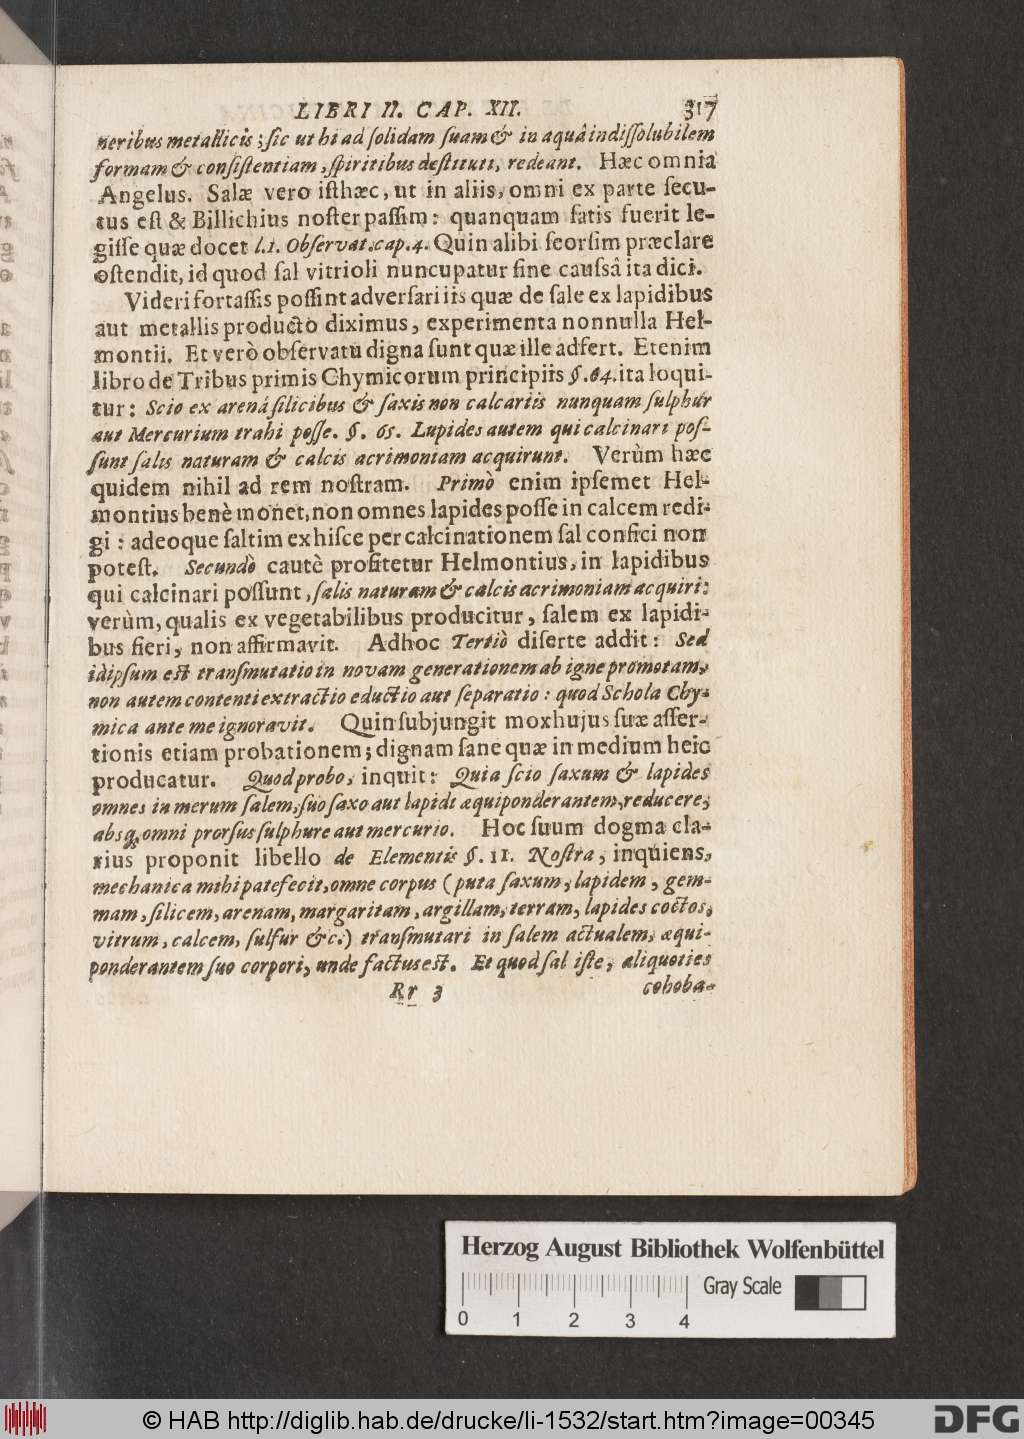 LIBRI II. CAP. XII. 317
neribus metallicis; sic ut hi ad solidam suam & in aquâ indissolubilem
formam & consistentiam, spiritibus destituti, redeant. Hæc omnia
Angelus. Salæ vero isthæc, ut in aliis, omni ex parte secu-
tus est & Billichius noster passim: quanquam satis fuerit le-
gisse quæ docet l.1. Observat. cap. 4. Quin alibi seorsim præclare
ostendit, id quod sal vitrioli nuncupatur sine caussâ ita dici.
Videri fortassis possint adversari iis quæ de sale ex lapidibus
aut metallis producto diximus, experimenta nonnulla Hel-
montii. Et verò observatu digna sunt quæ ille adfert. Etenim
libro de Tribus primis Chymicorum principiis §. 64. ita loqui-
tur: Scio ex arenâ silicibus & saxis non calcariis nunquam sulphur
aut Mercurium trahi posse. §. 65. Lapides autem qui calcinari pos-
sunt salis naturam & calcis acrimoniam acquirunt. Verùm hæc
quidem nihil ad rem nostram. Primò enim ipsemet Hel-
montius benè monet, non omnes lapides posse in calcem redi-
gi: adeoque saltim ex hisce per calcinationem sal confici non
potest. Secundò cautè profitetur Helmontius, in lapidibus
qui calcinari possunt, salis naturam & calcis acrimoniam acquiri:
verùm, qualis ex vegetabilibus producitur, salem ex lapidi-
bus fieri, non affirmavit. Adhoc Tertiò diserte addit: Sed
idipsum est transmutatio in novam generationem ab igne promotam,
non autem contenti extractio eductio aut separatio: quod Schola Chy-
mica ante me ignoravit. Quin subjungit mox hujus suæ asser-
tionis etiam probationem; dignam sane quæ in medium heic
producatur. Quod probo, inquit: Quia scio saxum & lapides
omnes in merum salem, suo saxo aut lapidi æquiponderantem, reducere,
absq; omni prorsus sulphure aut mercurio. Hoc suum dogma cla-
rius proponit libello de Elementis §. 11. Nostra, inquiens,
mechanica mihi patefecit, omne corpus (puta saxum, lapidem, gem-
mam, silicem, arenam, margaritam, argillam, terram, lapides coctos,
vitrum, calcem, sulfur &c.) transmutari in salem actualem, æqui-
ponderantem suo corpori, unde factus est. Et quod sal iste, aliquoties
Rr 3 cohoba-
Herzog August Bibliothek Wolfenbüttel
Gray Scale
0 1 2 3 4
© HAB http://diglib.hab.de/drucke/li-1532/start.htm?image=00345
DFG